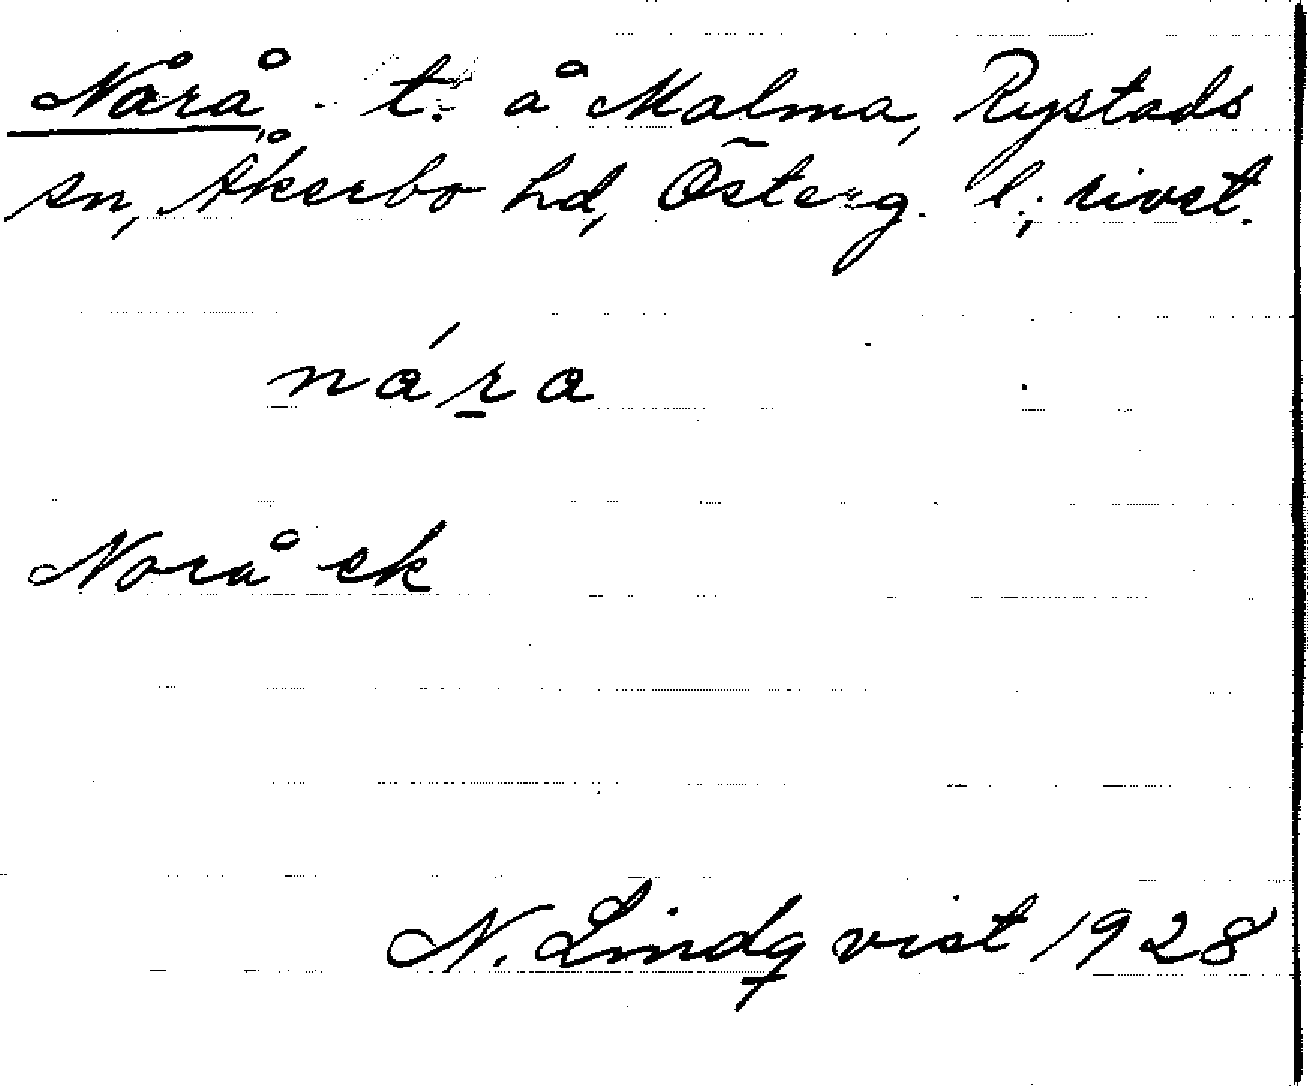 Nårå t. å Malma, Rystads
sn, Åkerbo hd, Österg. l.; rivet.
nára
Norå ek
N. Lindqvist 1928